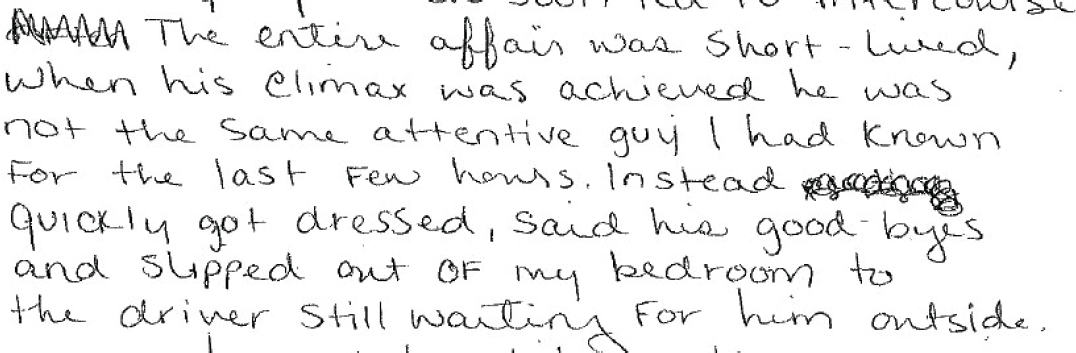 The entire affair was short-lived,
when his climax was achieved he was
not the same attentive guy I had known
For the last Few hours. Instead
quickly got dressed, said his good-byes
and slipped out OF my bedroom to
the driver still waiting For him outside.